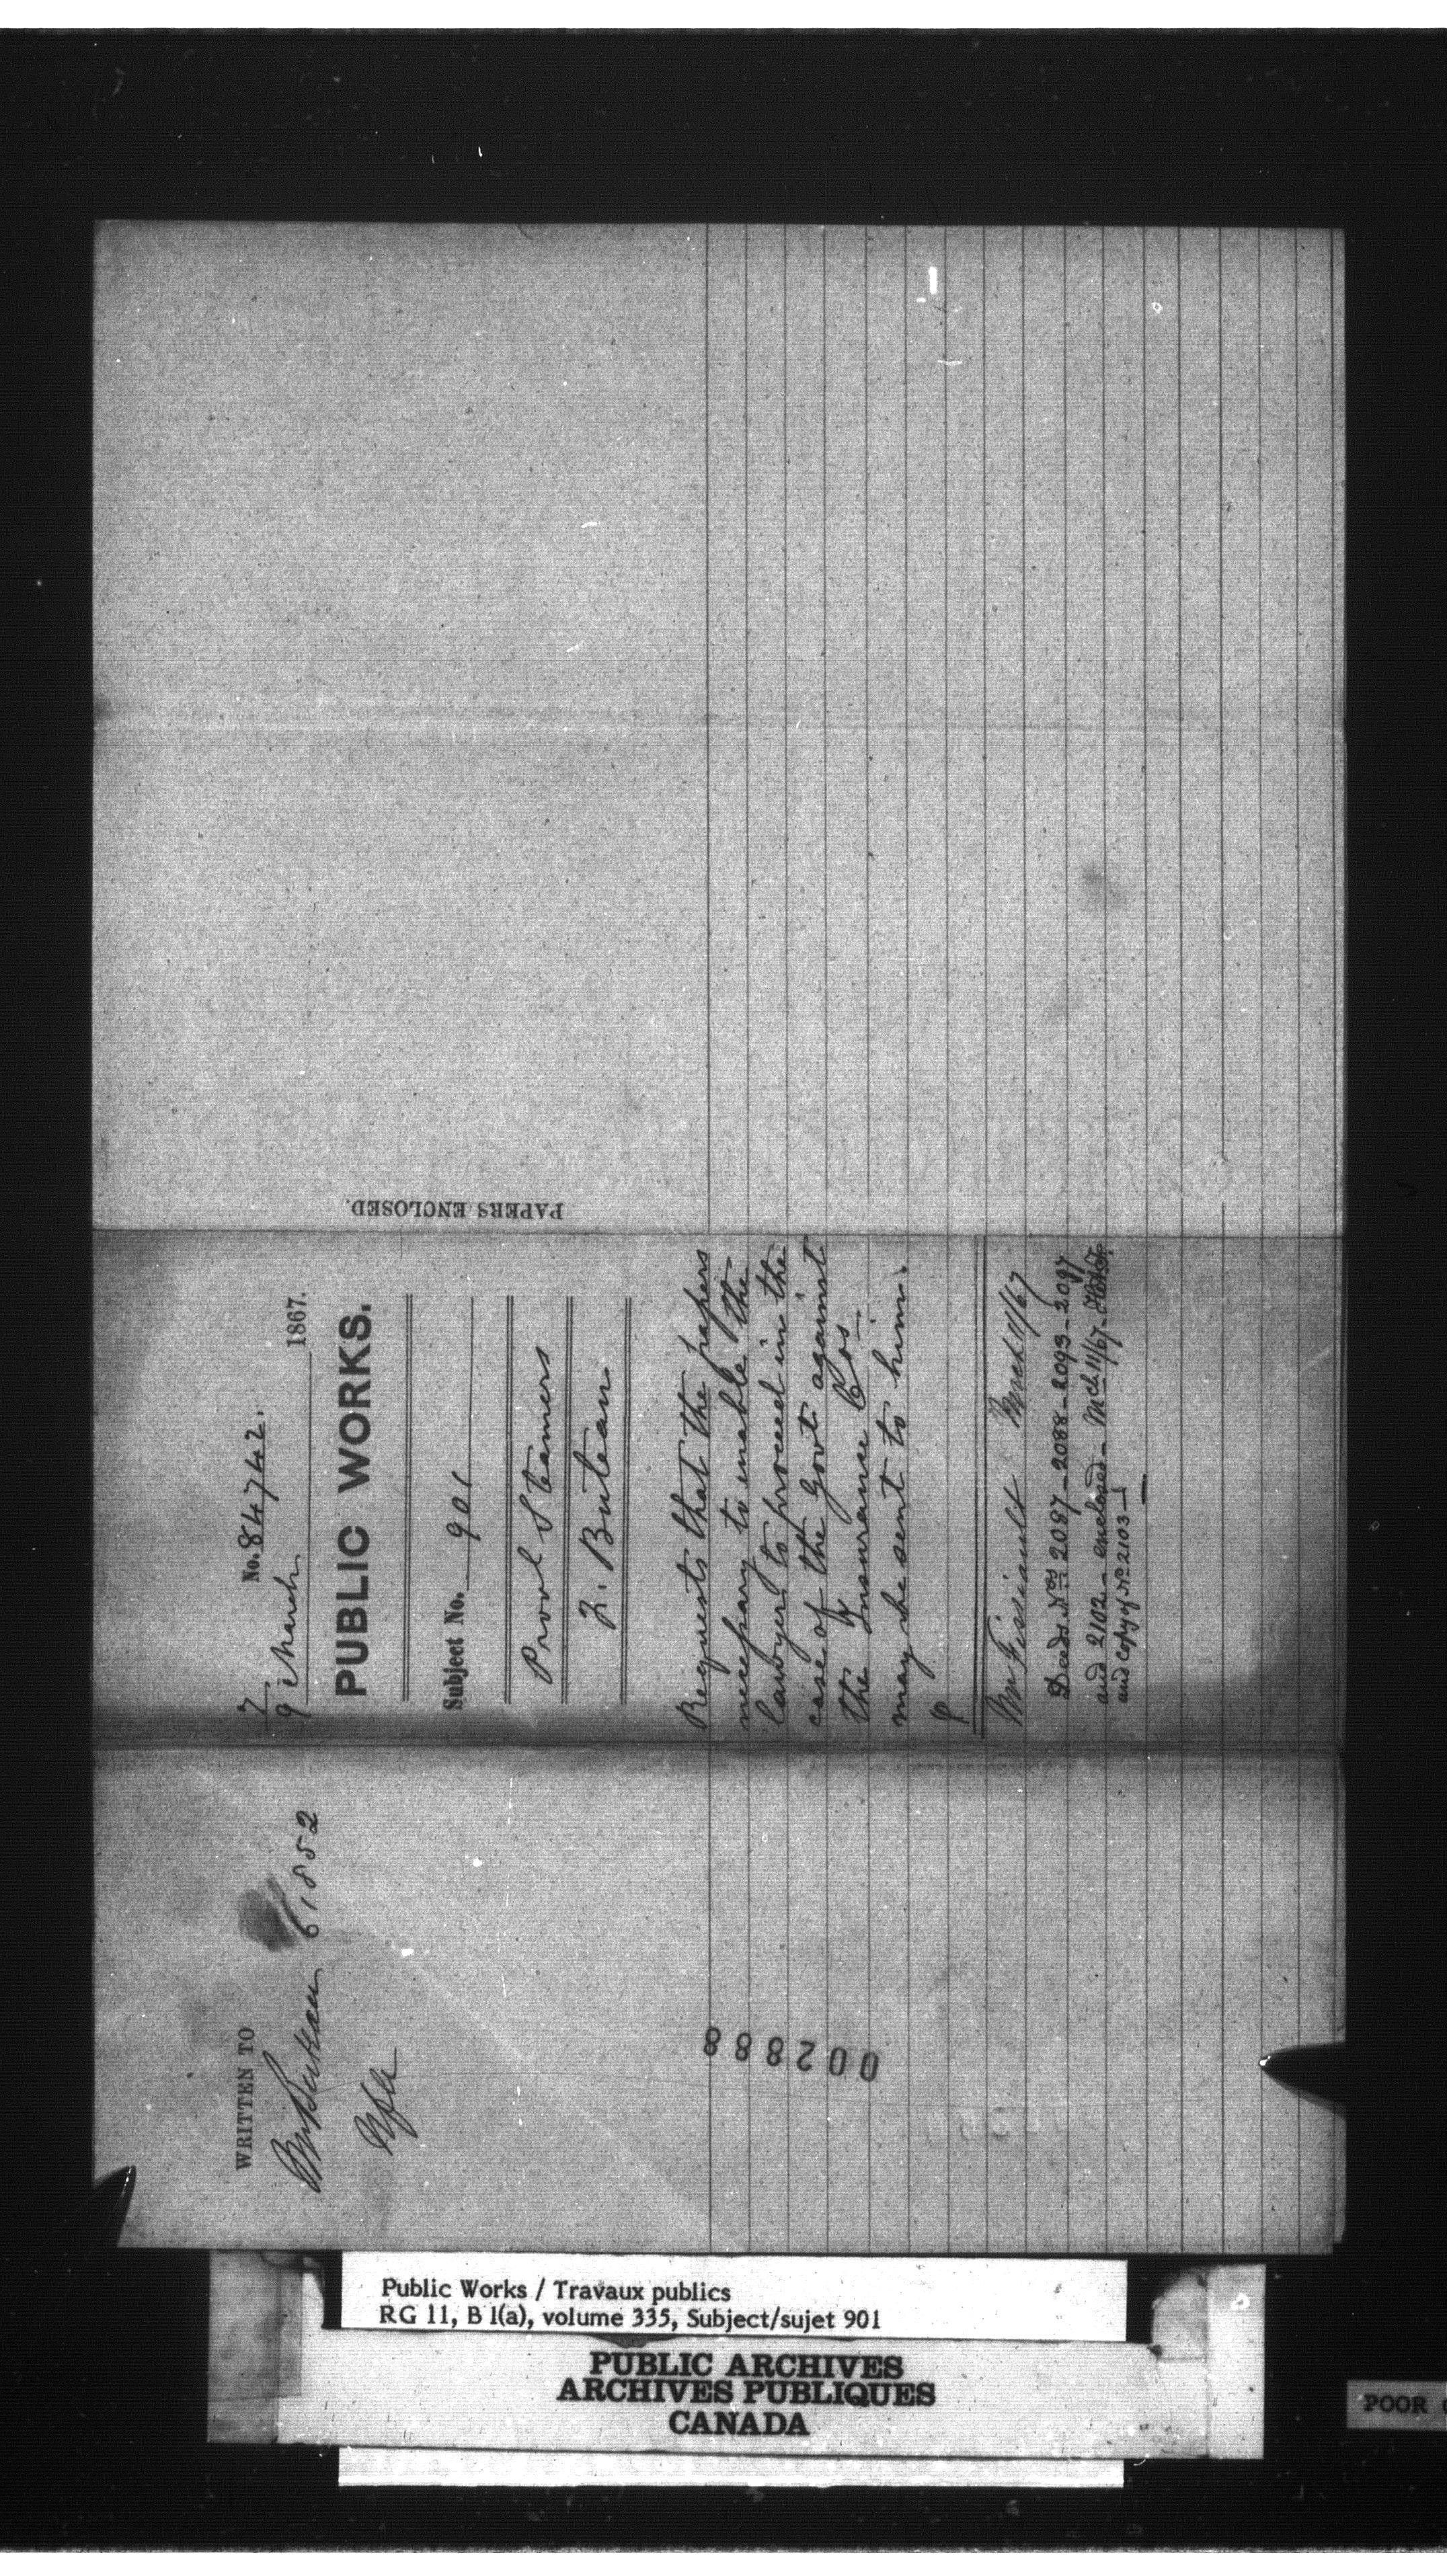 WRITTEN TO
61852
No. 84742.
9 March 1867.
PUBLIC WORKS.
Subject No. 901
Provl Steamers
F. Buteau
Requests that the papers
necessary to enable the
lawyers to proceed in the
case of the Govt against
the Insurance Cos.
may be sent to him.
Mr Fissiault March 11/67
Deeds Nos 2087-2088-2093-2097
and 2102 - enclosed - Mch 11/67 -
and copy of No 2103 -
PAPERS ENCLOSED.
002888
Public Works / Travaux publics
RG 11, B 1(a), volume 335, Subject/sujet 901
PUBLIC ARCHIVES
ARCHIVES PUBLIQUES
CANADA
POOR